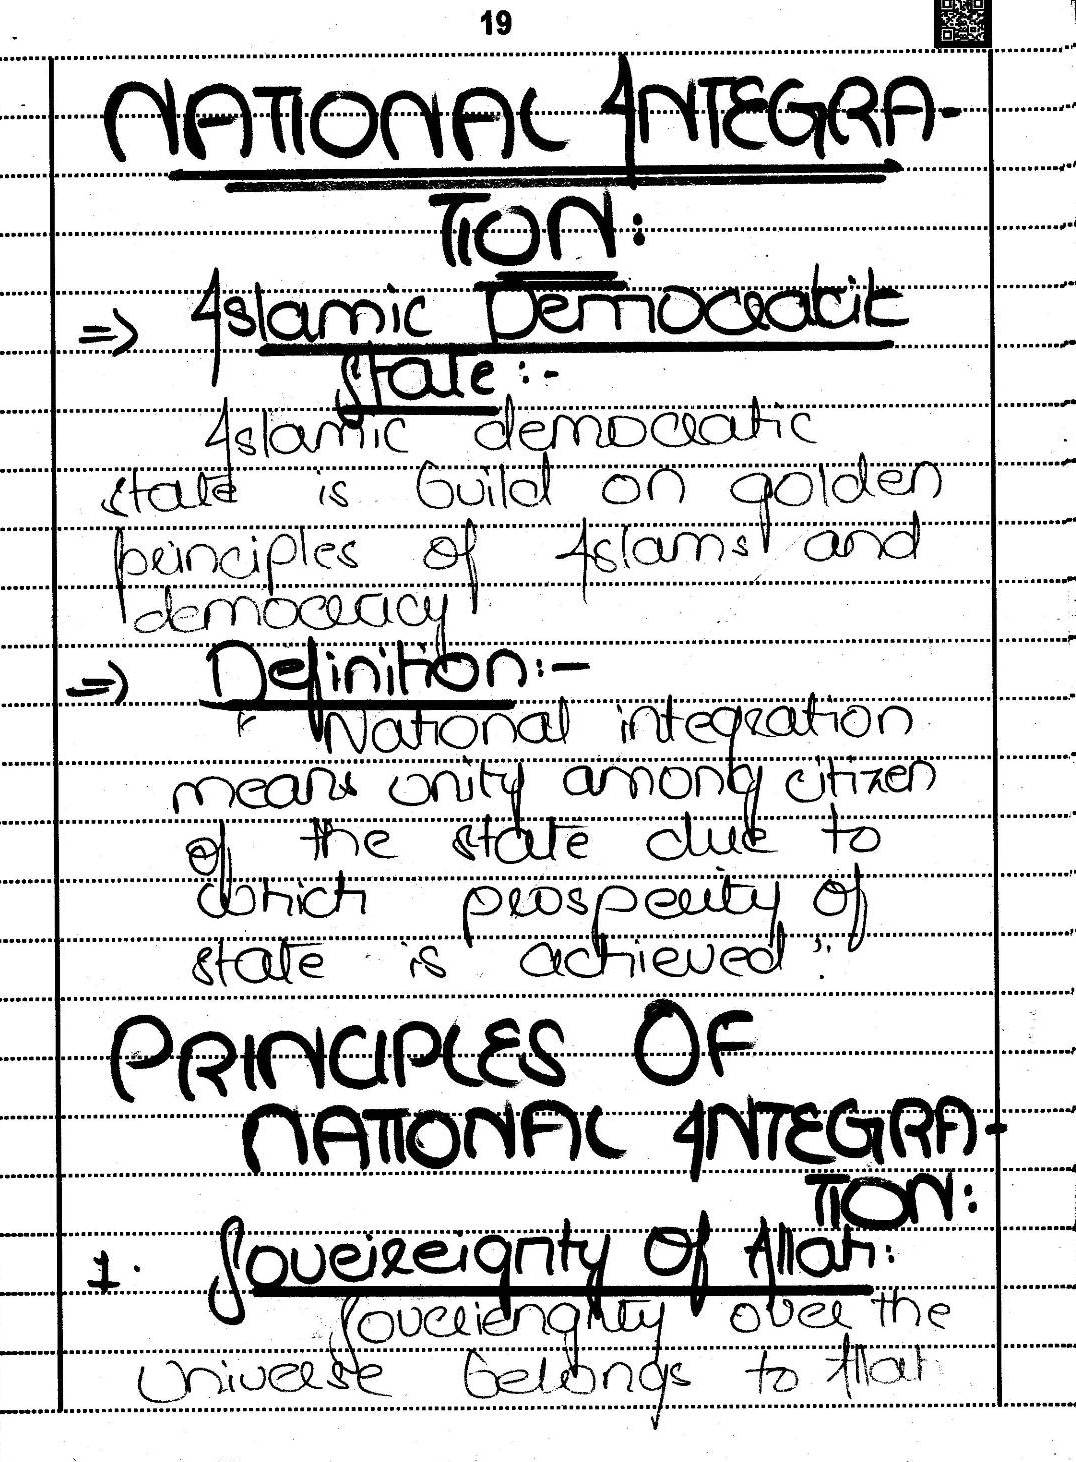 19
NATIONAL INTEGRA-
TION:
=> Islamic Democratic
State:-
Islamic democratic
state is build on golden
principles of Islams and
democracy
=> Definition:-
National integration
means unity among citizen
of the state due to
which prosperity of
state is achieved".
PRINCIPLES OF
NATIONAL INTEGRA-
TION:
1. Sovereignty of Allah:
Sovereignty over the
Universe belongs to Allah